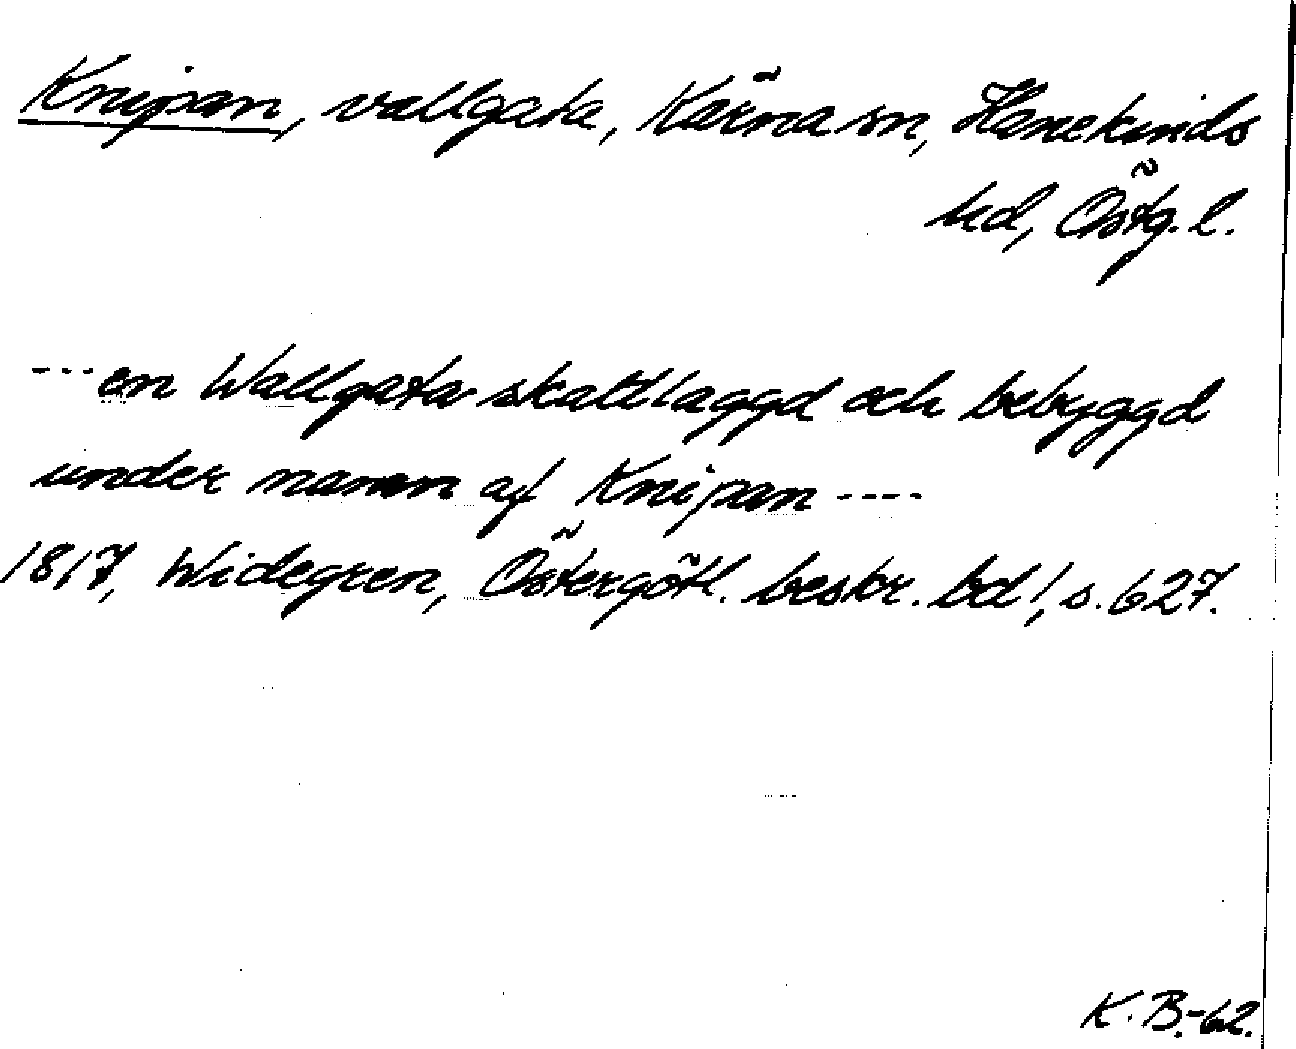 Knipan, vallgata, Kärna sn, Hanekinds
hd, Östg. l.
---en Wallgata skattlaggd och bebyggd
under namn af Knipan ----
1817, Widegren, Östergötl. beskr. bd 1, s. 627.
K. B.-62.